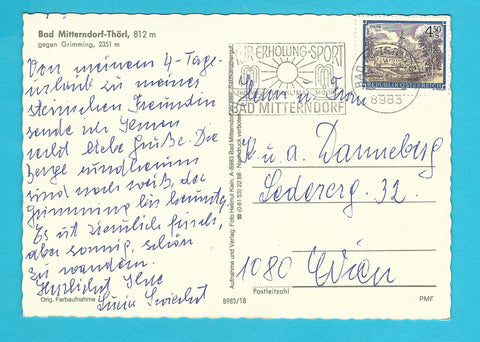 Bad Mitterndorf-Thörl, 812 m
gegen Grimming, 2351 m
Von meinem 4-Tage-
urlaub zu meiner
steirischen Freundin
sende ich Ihnen
recht liebe Grüße. Die
Berge rundherum
sind noch weiß, der
Grimming bis herunter.
Es ist ziemlich frisch,
aber sonnig, schön
zu wandern.
Herzlichst Ihre
Orig. Farbaufnahme
8983/18
Aufnahme und Verlag: Foto Helmut Kain, A-8983 Bad Mitterndorf
☎ (0 61 53) 22 88 · Nachdruck verboten
ERHOLUNG + SPORT
BAD MITTERNDORF
8983
4.50
REPUBLIK ÖSTERREICH
Herrn u. Frau
K. u. A. Danneberg
Ledererg. 32.
1080 Wien
Postleitzahl
PMF